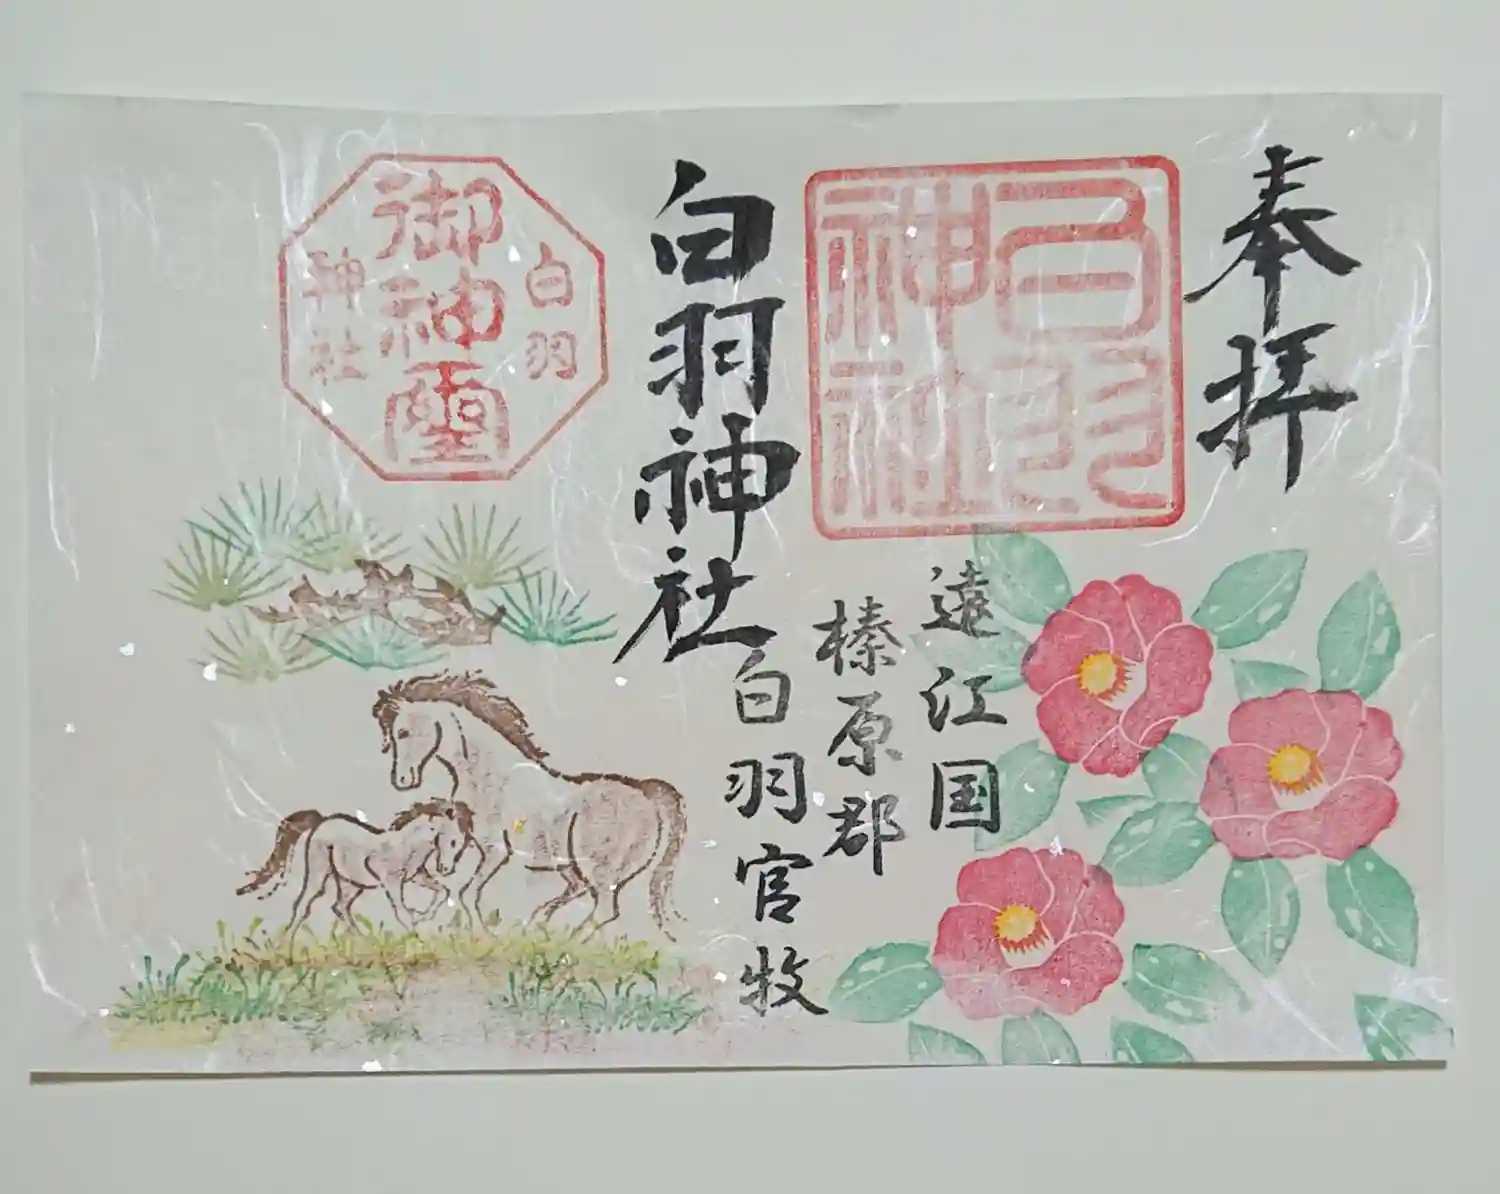 奉拝
白羽神社
遠江国
榛原郡
白羽官牧
白羽神社
白羽
御神璽
神社